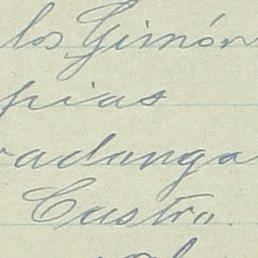 los Gimón
pias
radanga
Castro.